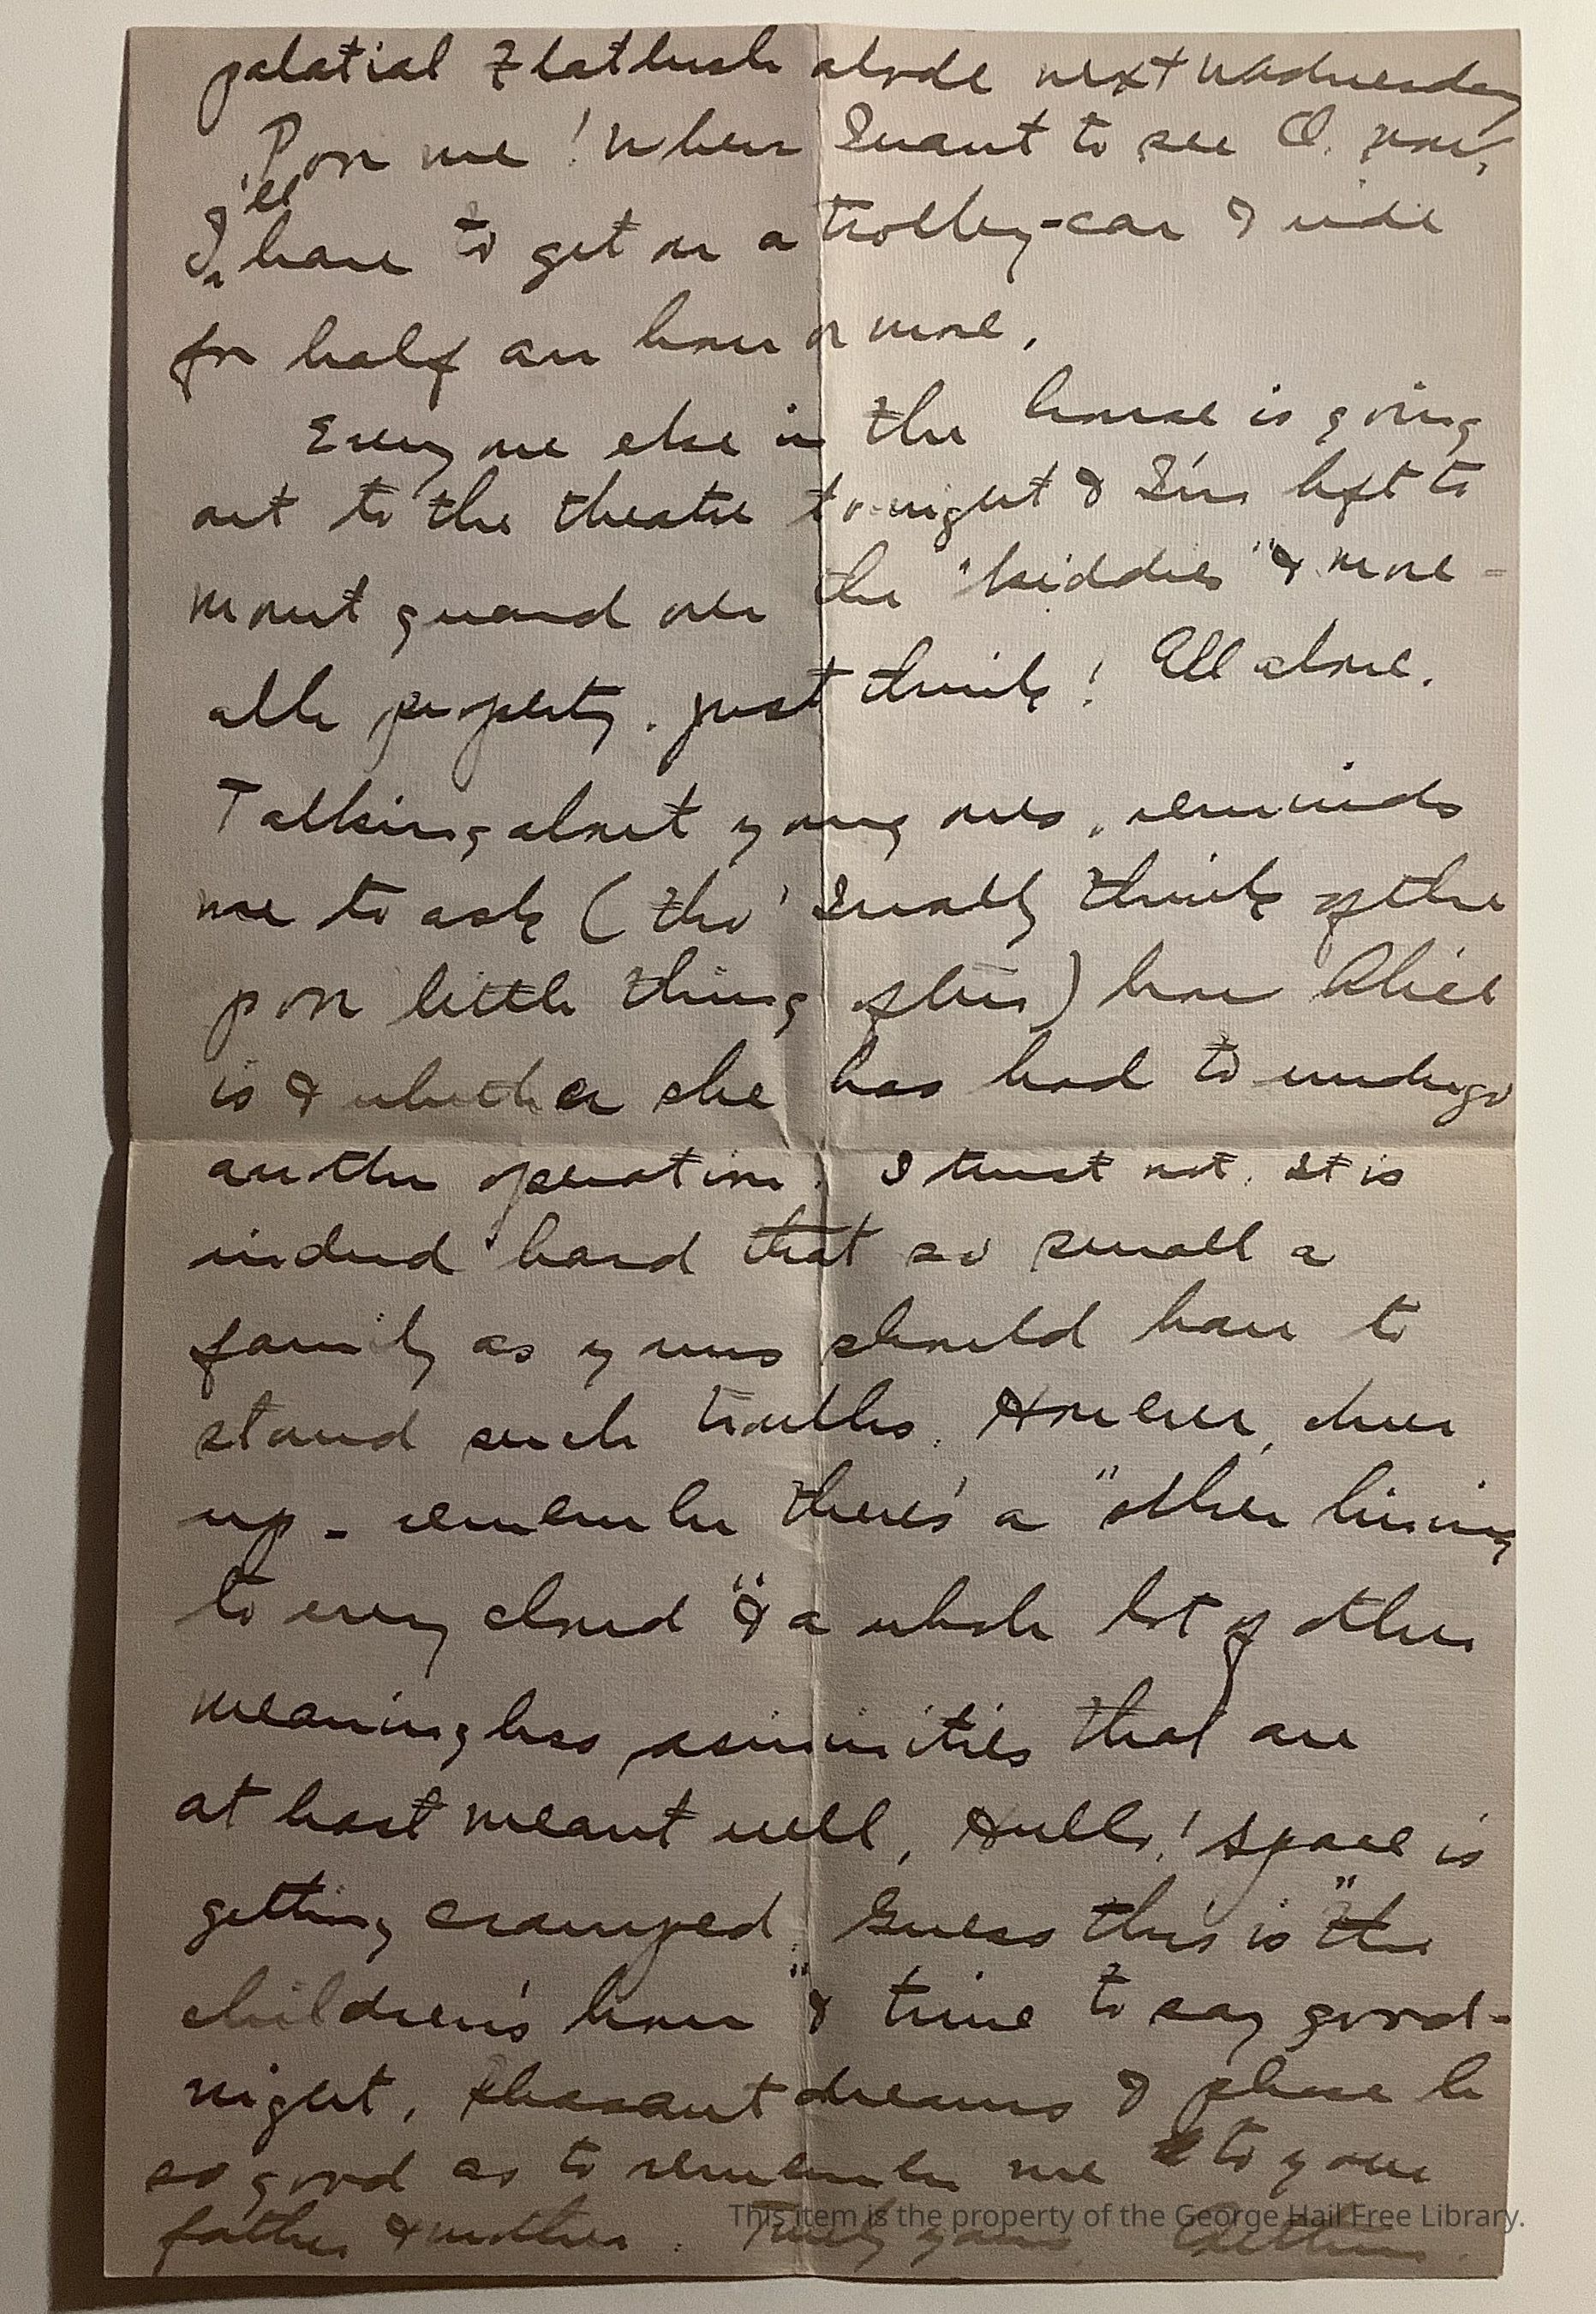 palatial Flatbush abode next Wednesday
Poor me! When I want to see O. now,
I'll have to get on a trolley-car & ride
for half an hour or more.
Every one else in the house is going
out to the theatre to-night & I'm left to
mount guard over the "kiddies" & move-
able property. Just think! All alone.
Talking about young ones, reminds
me to ask (tho' I really think of the
poor little thing often) how Alice
is & whether she has had to undergo
another operation. I trust not. It is
indeed hard that so small a
family as yours should have to
stand such troubles. However, cheer
up - remember there's a "other lining
to every cloud" & a whole lot of other
meaningless asininities that are
at least meant well. Hullo! Space is
getting cramped. Guess this is "the
children's hour" & time to say good-
night. Pleasant dreams & please be
so good as to remember me to your
father & mother. Truly yours,
This item is the property of the George Hail Free Library.